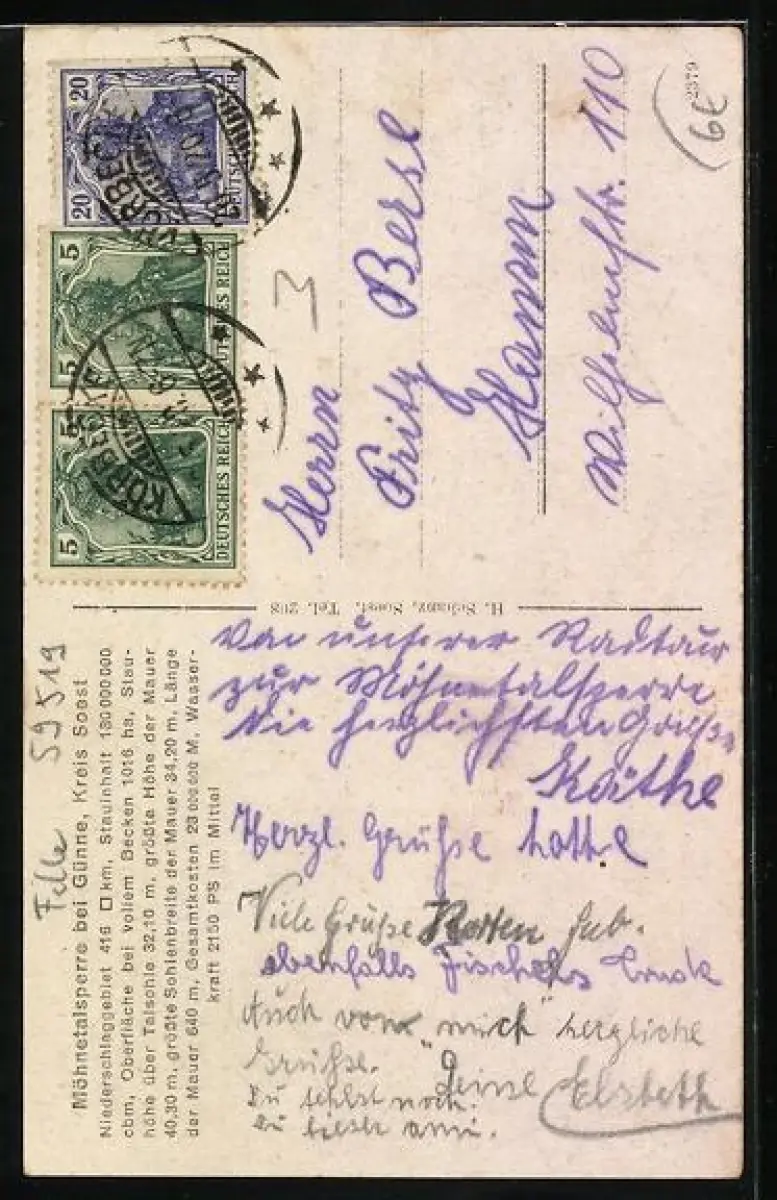 Möhnetalsperre bei Günne, Kreis Soest
Niederschlaggebiet 416 □km, Stauinhalt 130 000 000
cbm, Oberfläche bei vollem Becken 1016 ha, Stau-
höhe über Talsohle 32,10 m, größte Höhe der Mauer
40,30 m, größte Sohlenbreite der Mauer 34,20 m, Länge
der Mauer 640 m, Gesamtkosten 23 000 000 M, Wasser-
kraft 2150 PS im Mittel
59519
Von unserer Radtour
zur Möhnetalsperre
die herzlichsten Grüße
Käthe
Herzl. Grüße Lotte
Viele Grüße
ebenfalls
Auch von "mich" herzliche
Grüße. Deine Elsbeth
Du fehlst noch.
Du
H. Schanz, Soest. Tel. 208
20 20
DEUTSCHES REICH
5 5
DEUTSCHES REICH
5 5
DEUTSCHES REICH
KÖRBECKE
KÖRBECKE
3
Herrn
Fritz Berse
Hamm
Wilhelmstr. 110
2379
6€